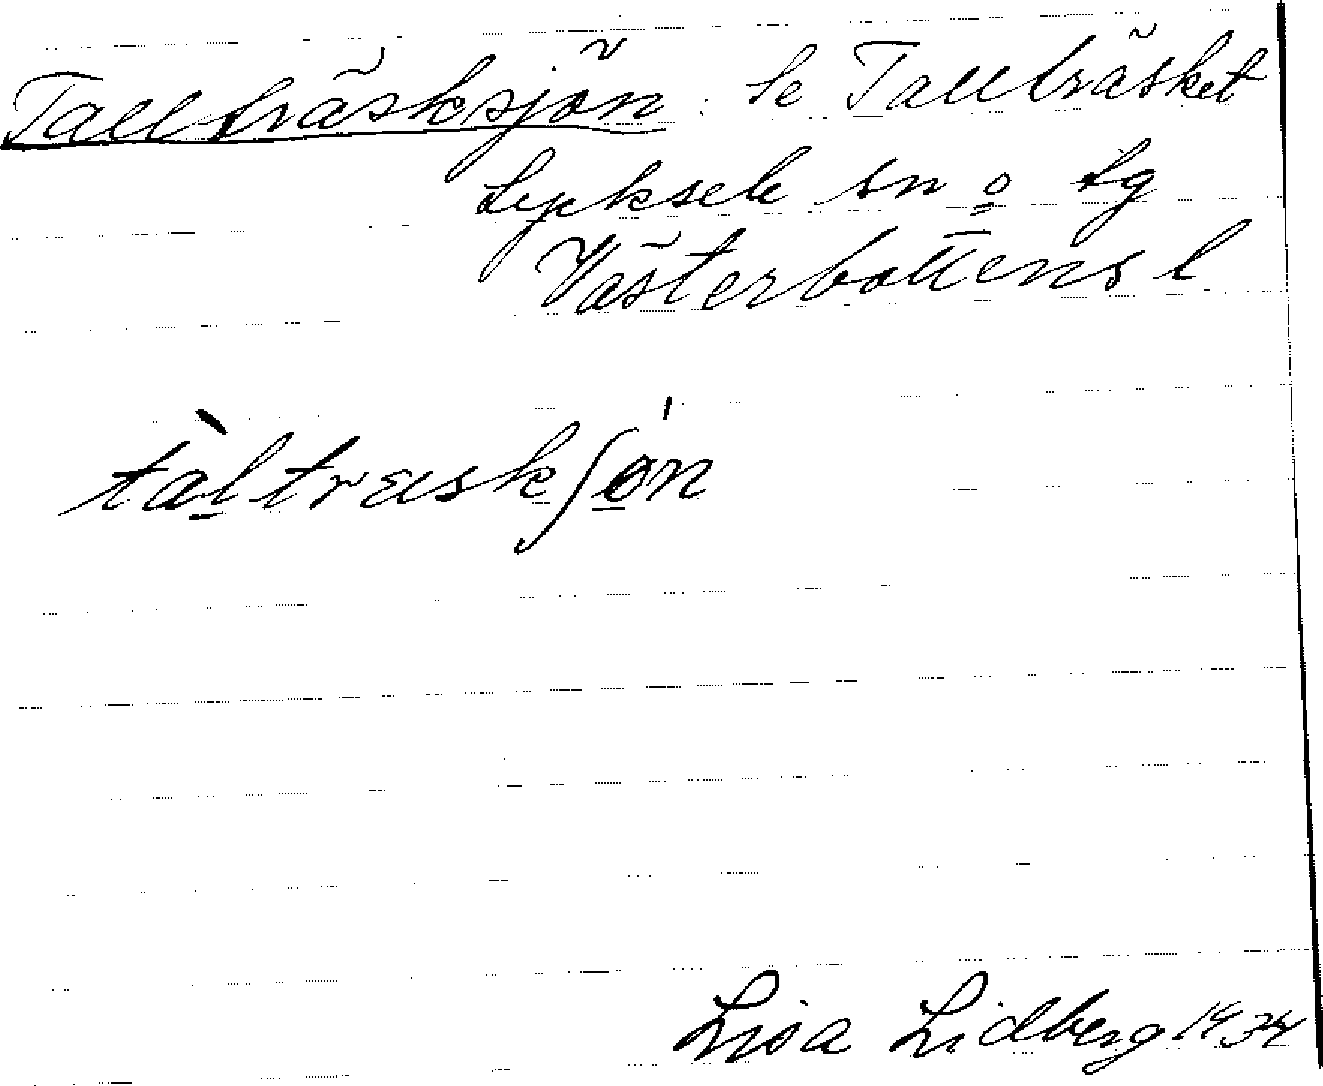 Tallträsksjön. Se Tallträsket
Lycksele sn o. lg
Västerbottens l
tàltræskʃǿ̱n
Lisa Lidberg 1934